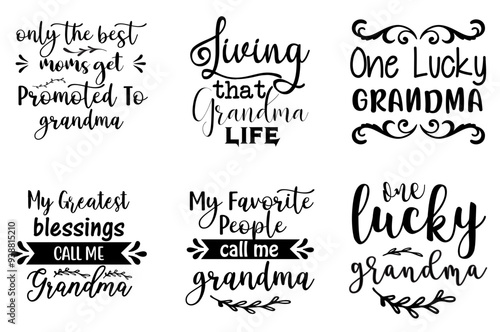 only the best
moms get
Promoted To
grandma
Living
that
Grandma
LIFE
One Lucky
GRANDMA
My Greatest
blessings
CALL ME
Grandma
My Favorite
People
call me
grandma
one
lucky
grandma
Adobe Stock | #928815210